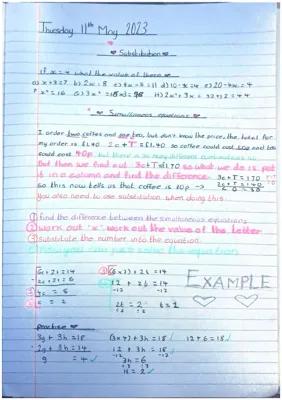 Thursday 11th May 2023
Substitution
if x=4 what the value of these
a) x+3=7 b) 2x=8 c) 4x-5=11 d) 10-x=6 e) 20-4x=4
x²=16 g) 3x² H) 2x²+3x = 32+12=44
Simultaneous equations
I order two coffes and one tea, but don't know the price, the total for
my order is £1.40 2c+T=£1.40 so coffee could cost 50p and tea
could cost 40p but there is so many different combinations so
But then we find out 3c+T=£1.70 so what we do is put
it in a column and find the difference 3c+T=1.70
so this now tells us that coffee is 30p → 2c+T=1.40
You also need to use substitution when doing this.
① find the difference between the simultaneous equations
② work out 'x' work out the value of the letter
③ substitute the number into the equation
④ now you can just solve the equation
③ (6×2)+2b=14 EXAMPLE
12+2b=14
-12 -12
2b=2 b=1
practise
3g+3h=18 (3×4)+3h=18 12+6=18
2g+3h=14 12+3h=18
g=4 -12 -12
3h=6
÷3 ÷3
h=2